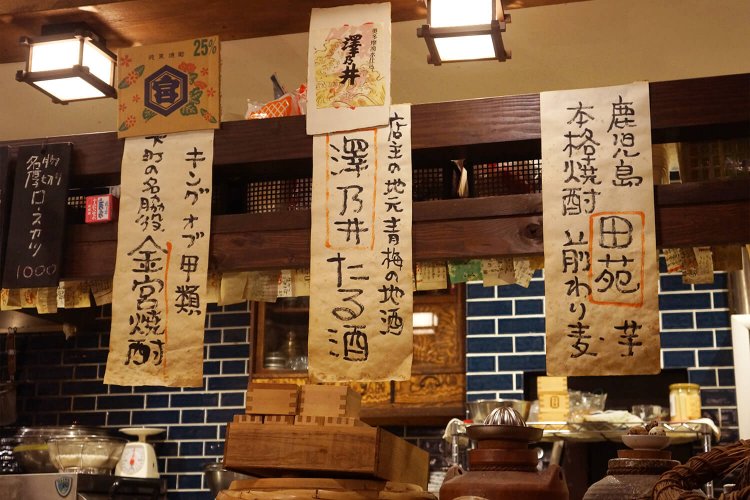 名物
厚切ロースカツ
1000
25%
宮
キング オブ 甲類
下町の名脇役
金宮焼酎
澤乃井
店主の地元青梅の地酒
澤乃井たる酒
鹿児島
本格焼酎
田苑 芋
前わり麦